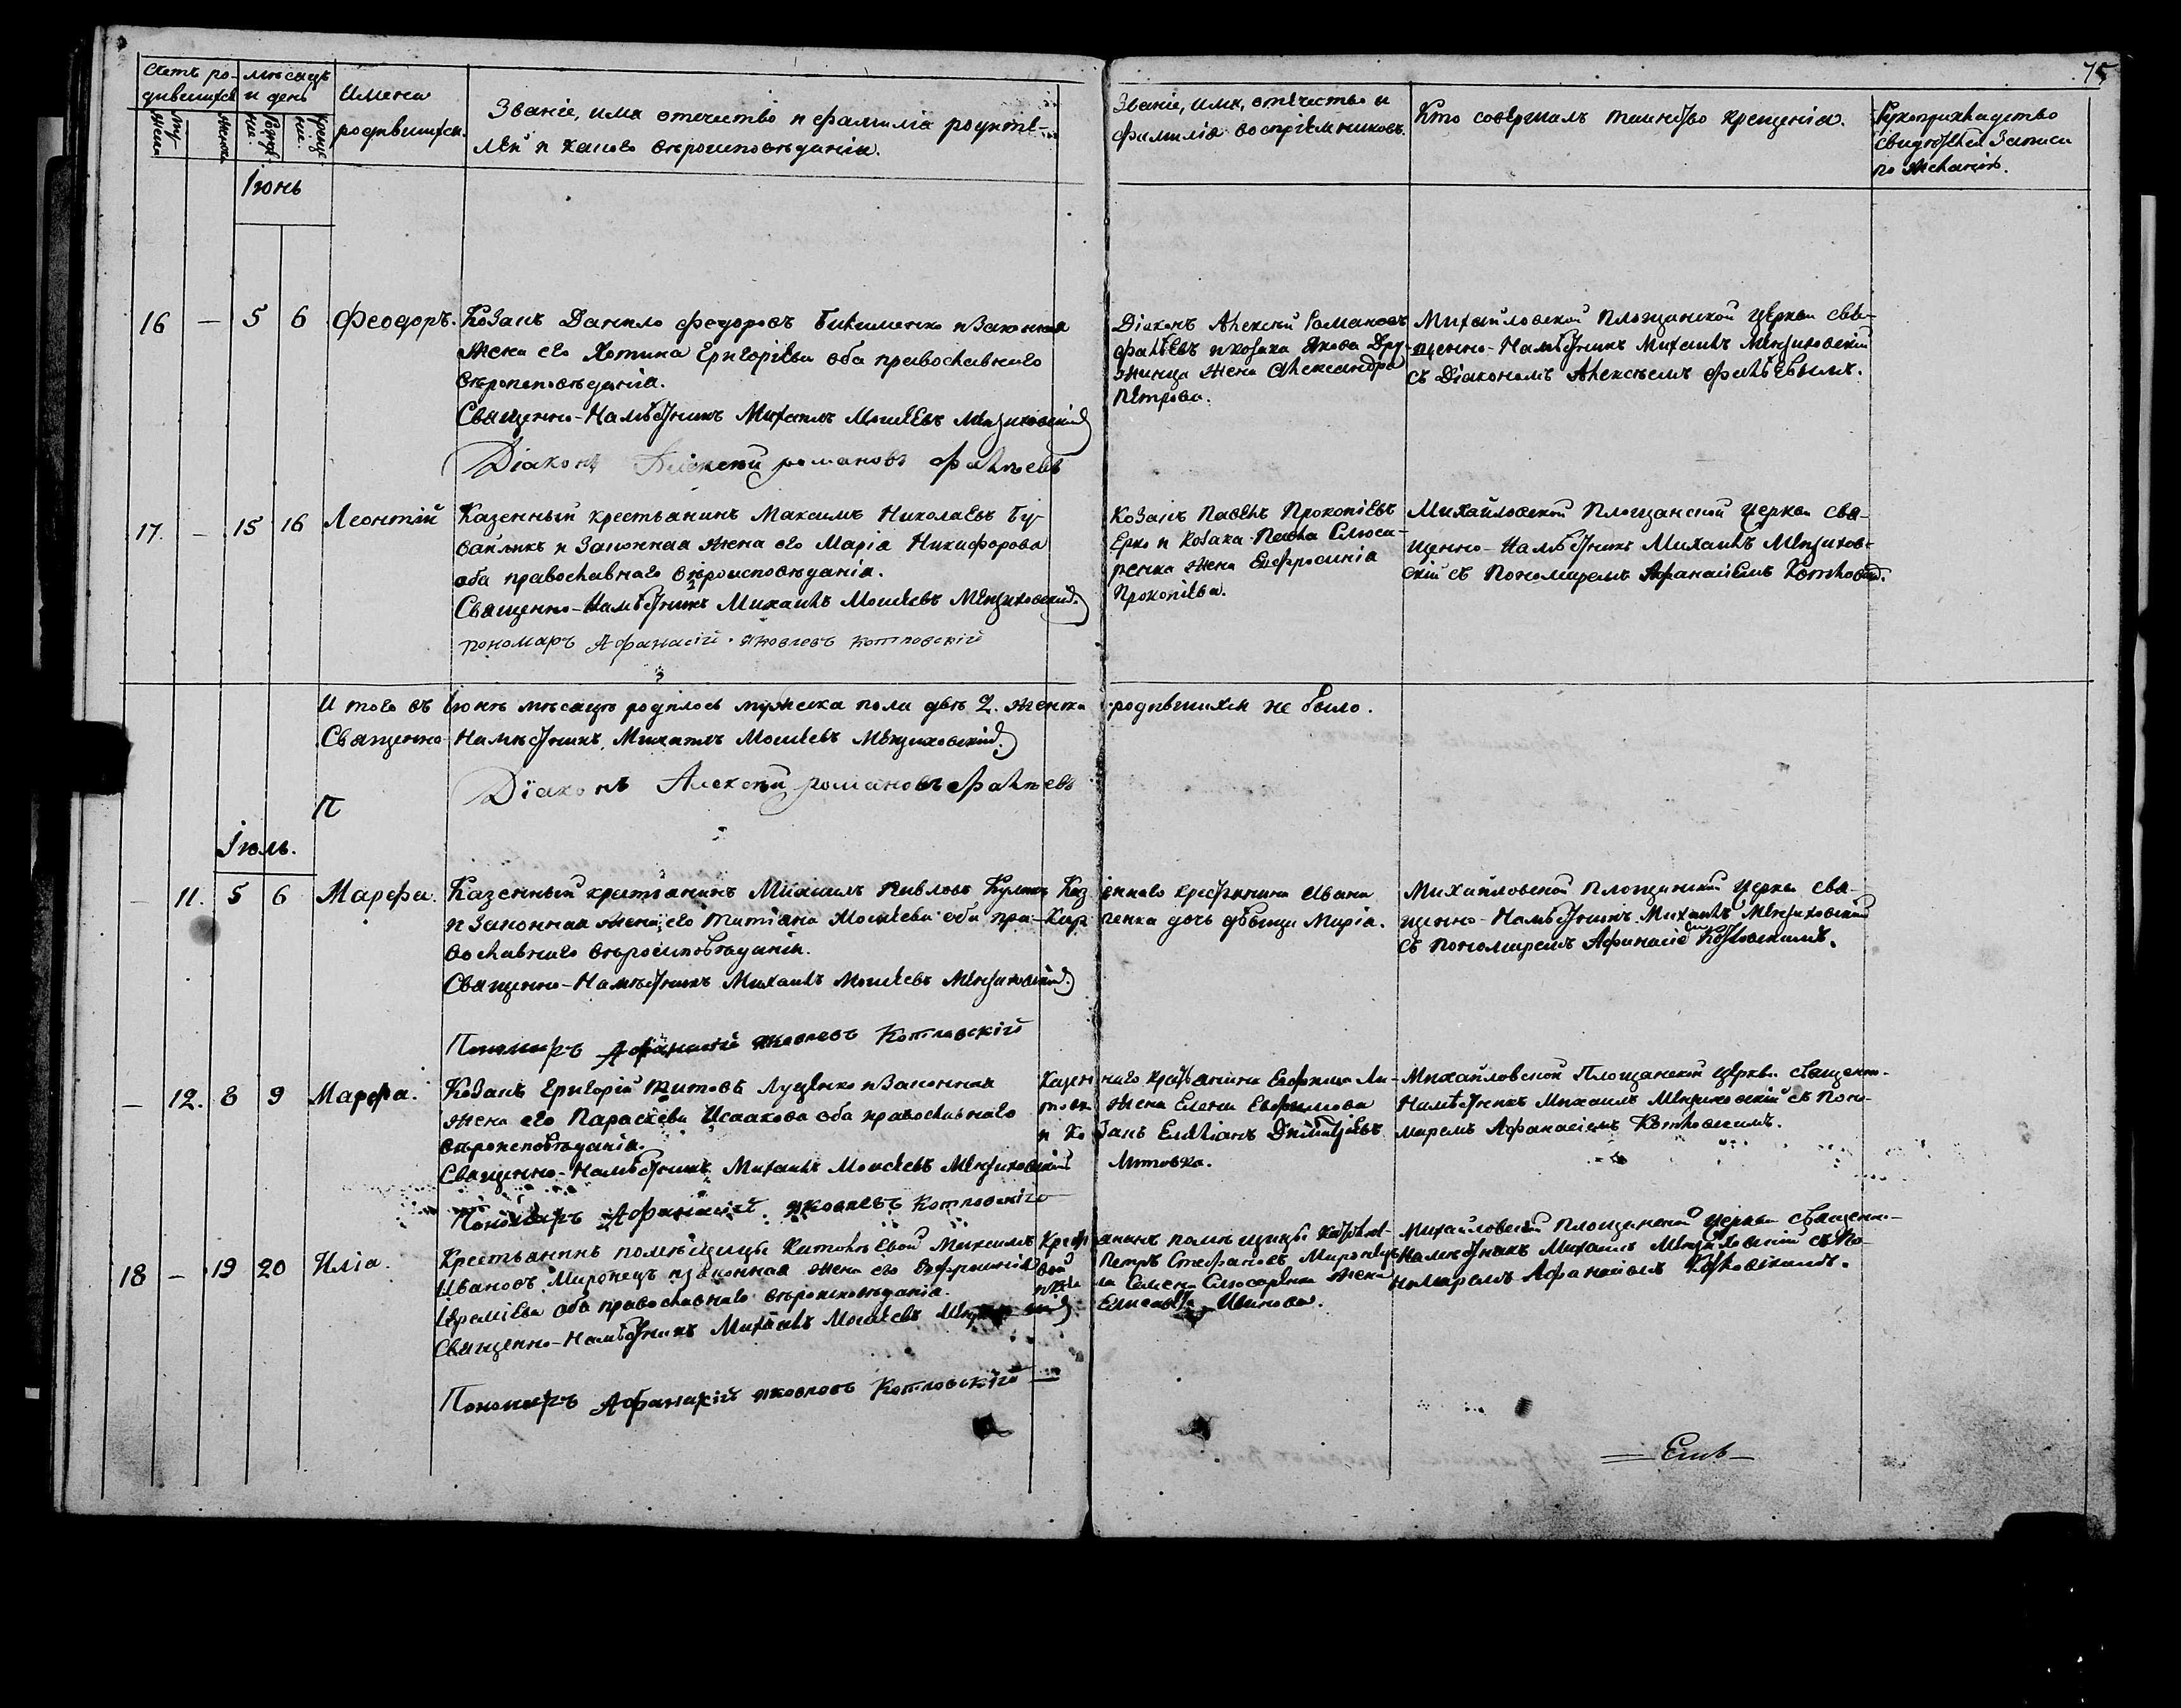 75
Счетъ ро-
дившихся
мѣсяцъ
и день
Имена
родившихся.
Званіе, имя отечество и фамилія родите-
лей и какого вѣроисповѣданія.
Званіе, имя, отечество и
фамилія воспріемниковъ.
Кто совершалъ таинство крещенія.
Рукоприкладство
свидѣтелей записи
по желанію.
Іюнь
16 — 5 6 Феодоръ.
Козакъ Данило Федоровъ и законная
жена его Хотина Григоріева оба православнаго
вѣроисповѣданія.
Священно-Намѣстникъ Михаилъ Моисеевъ
Діаконъ Алексѣй Романовъ Фалѣевъ
Діаконъ Алексѣй Романовъ
Фалѣевъ и козака Якова
жена Александра
Петрова.
Михайловской Площанской церкви свя-
щенно-Намѣстникъ Михаилъ
съ Діакономъ Алексѣемъ Фалѣевымъ.
17. — 15 16 Леонтій
Казенный крестьянинъ Максимъ Николаевъ
и законная жена его Марія Никифорова
оба православнаго вѣроисповѣданія.
Священно-Намѣстникъ Михаилъ Моисеевъ
пономаръ Афанасій Яковлевъ Котловскій
Козакъ Павелъ Прокопіевъ
и козака Павла Слюса-
ренка жена Евфросинія
Прокопіева.
Михайловской Площанской церкви свя-
щенно-Намѣстникъ Михаилъ
съ Пономаремъ Афанасіемъ
И того въ Іюнѣ мѣсяцѣ родилось мужеска пола два 2. женска родившихся не было.
Священно-Намѣстникъ Михаилъ Моисеевъ
Діаконъ Алексѣй Романовъ Фалѣевъ
П
Іюль.
— 11. 5 6 Марфа.
Казенный крестьянинъ Михаилъ Павловъ Куликъ
и законная жена его Татіана Моисеева оба пра-
вославнаго вѣроисповѣданія.
Священно-Намѣстникъ Михаилъ Моисеевъ
Пономаръ Афанасій Яковлевъ Котловскій
Казеннаго крестьянина Ивана
дочь дѣвица Марія.
Михайловской Площанской церкви свя-
щенно-Намѣстникъ Михаилъ
съ пономаремъ Афанасіемъ Котловскимъ.
— 12. 8 9 Марфа.
Козакъ Григорій Титовъ Луценко и законная
жена его Параскева Исаакова оба православнаго
вѣроисповѣданія.
Священно-Намѣстникъ Михаилъ Моисеевъ
Пономаръ Афанасій Яковлевъ Котловскій
Казеннаго крестьянина Евфима Ли-
товки жена Елена Евфимова
и Козакъ Емеліанъ
Литовка.
Михайловской Площанской церкви священно-
Намѣстникъ Михаилъ съ Поно-
маремъ Афанасіемъ Котловскимъ.
18 — 19 20 Илія.
Крестьянинъ помѣщицы Максимъ
Ивановъ Миронецъ и законная жена его Евфросинія
оба православнаго вѣроисповѣданія.
Священно-Намѣстникъ Михаилъ Моисеевъ
Пономаръ Афанасій Яковлевъ Котловскій
Крестьянинъ помѣщицы
Петръ Стефановъ Миронецъ
Семена Слюсаренка жена
Елисавета Иванова.
Михайловской Площанской церкви священно-
Намѣстникъ Михаилъ съ По-
номаремъ Афанасіемъ Котловскимъ.